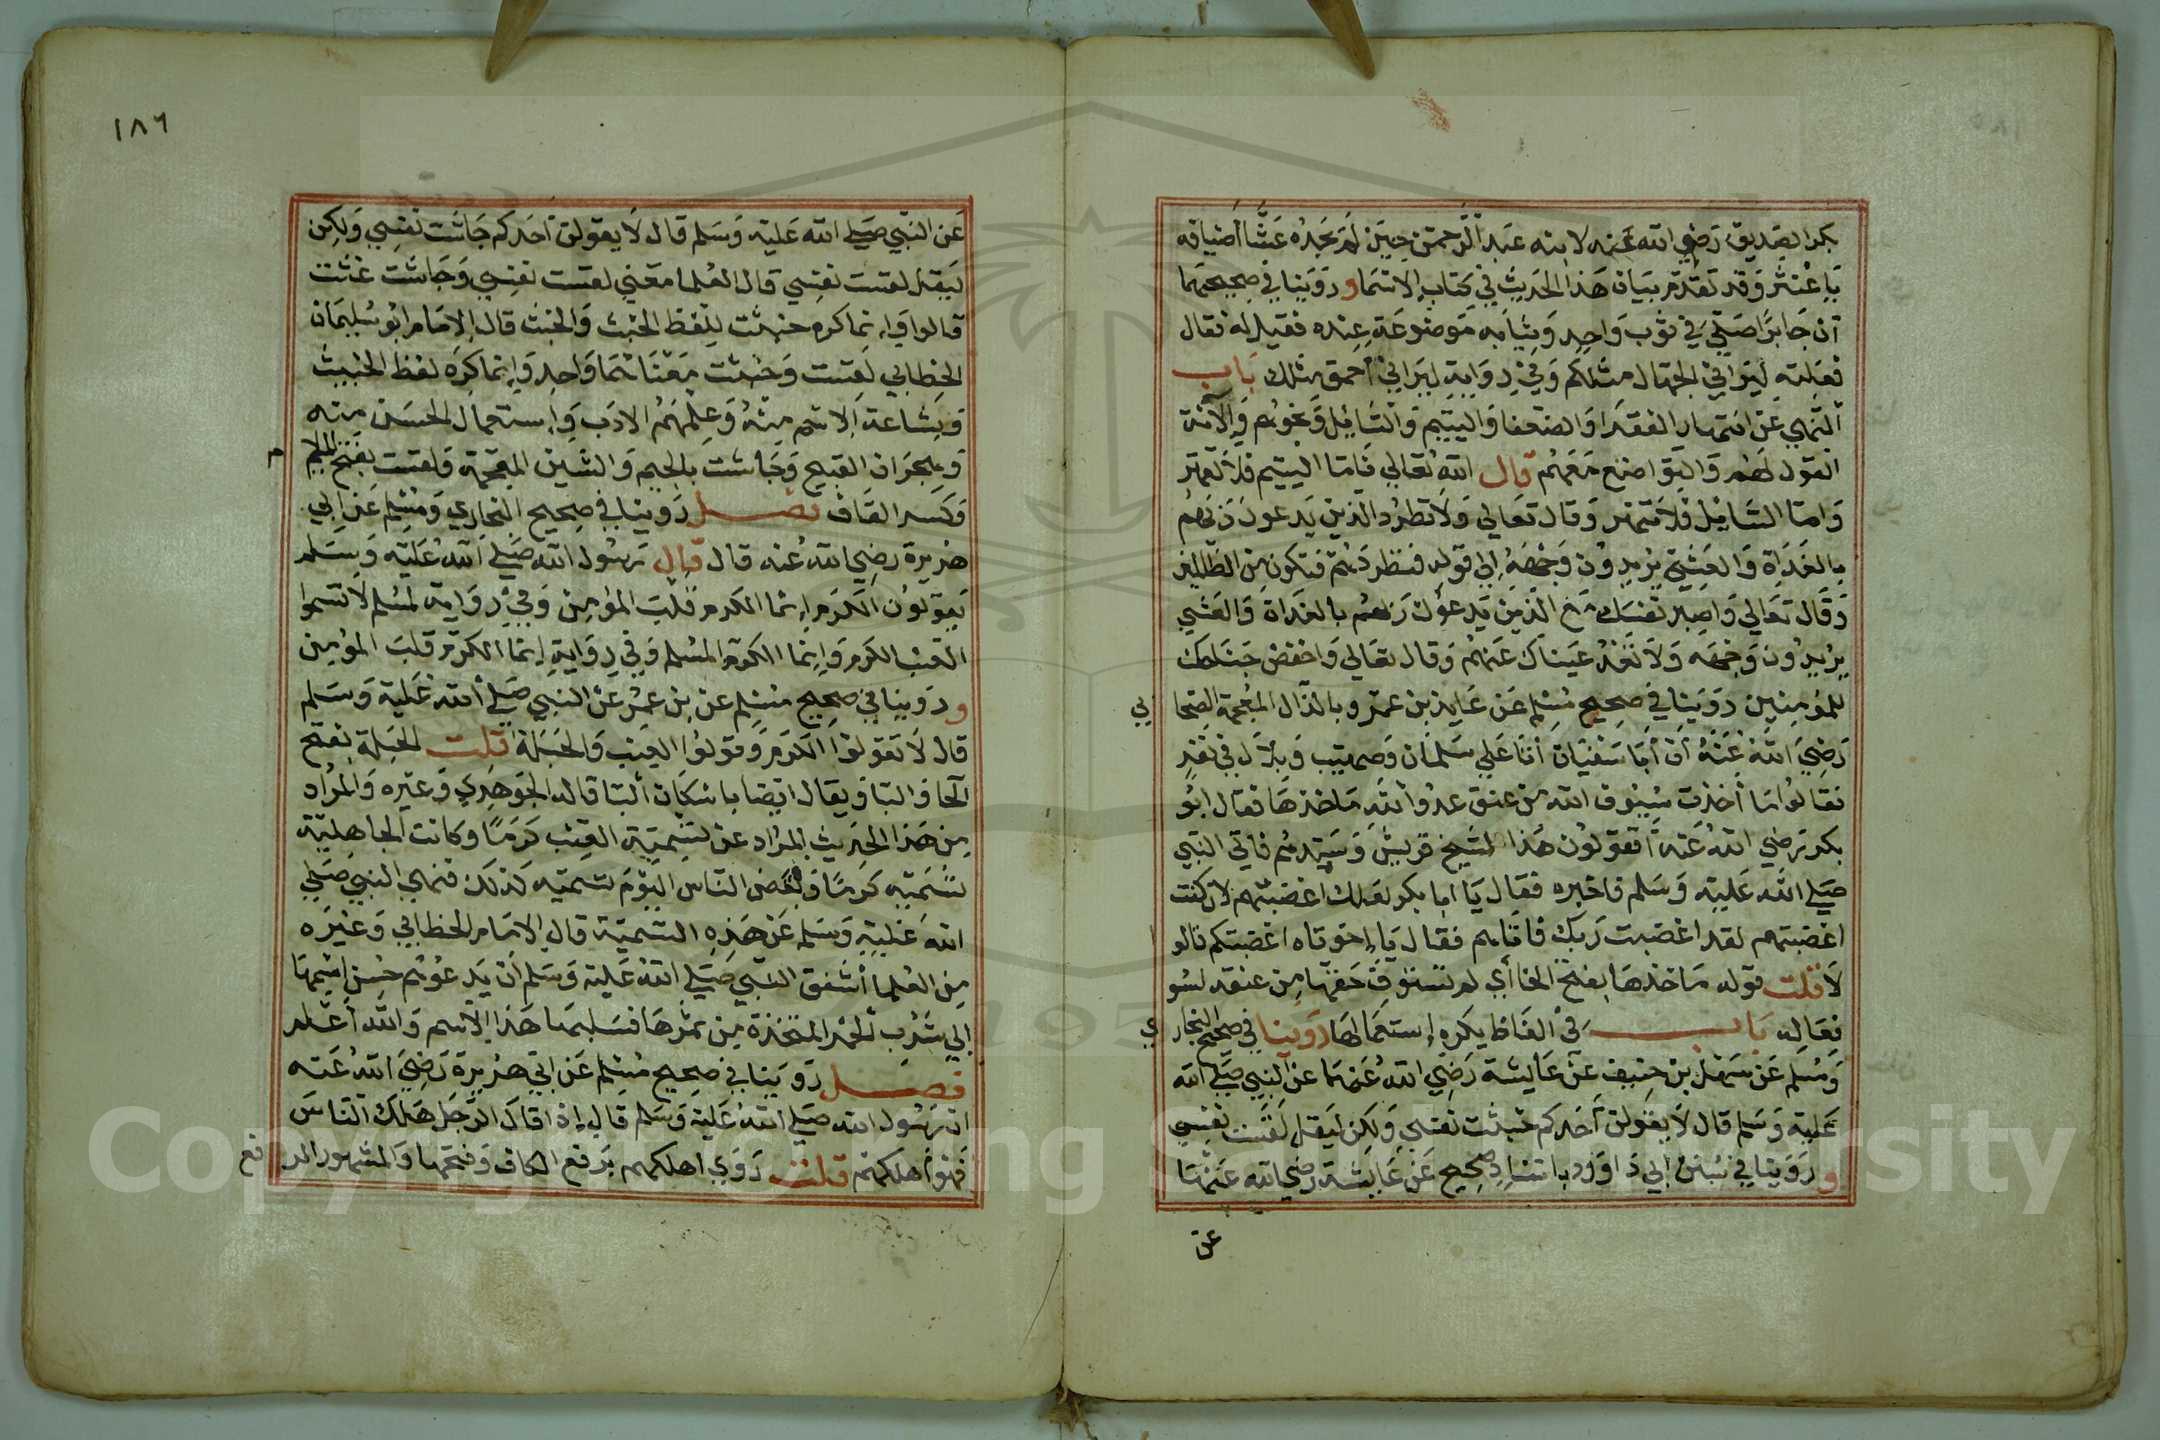 بكر الصديق رضي الله عنه لابنه عبد الرحمن حين لم يجده عشا أضيافه
يا غنثر وقد تقدم بيان هذا الحديث في كتاب الاسما وروينا في صحيحيهما
أن جابرا صلي في ثوب واحد وثيابه موضوعة عنده فقيل له فقال
فعلته ليراني الجهال مثلكم وفي رواية ليراني أحمق مثلك باب
النهي عن انتهار الفقرا والضعفا واليتيم والسايل ونحوهم والانة
القول لهم والتواضع معهم قال الله تعالي فاما اليتيم فلا تقهر
واما السايل فلا تنهر وقال تعالي ولا تطرد الذين يدعون ربهم
بالغداة والعشي يريدون وجهه إلي قوله فتطردهم فتكون من الظالمين
وقال تعالي واصبر نفسك مع الذين يدعون ربهم بالغداة والعشي
يريدون وجهه ولا تعد عيناك عنهم وقال تعالي واخفض جناحك
للمؤمنين روينا في صحيح مسلم عن عايذ بن عمرو بالذال المعجمة الصحا بي
رضي الله عنه أن أبا سفيان أتا علي سلمان وصهيب وبلال في نفر
فقالوا ما أخذت سيوف الله من عنق عدو الله ماخذها فقال ابو
بكر رضي الله عنه أتقولون هذا لشيخ قريش وسيدهم فاتي النبي
صلي الله عليه وسلم فاخبره فقال يا ابا بكر لعلك اغضبتهم لان كنت
اغضبتهم لقد اغضبت ربك فاتاهم فقال يا إخوتاه اغضبتكم قالو ا
لا قلت قوله ماخذها بفتح الخا أي لم تستوف حقها من عنقه لسو
فعاله باب في ألفاظ يكره إستعمالها روينا في صحيح البخار ي
ومسلم عن سهل بن حنيف عن عايشة رضي الله عنهما عن النبي صلي الله
عليه وسلم قال لا يقولن أحدكم خبثت نفسي ولكن ليقل لقست نفسي
وروينا في سنن ابي داوود باسناد صحيح عن عايشة رضي الله عنها
عن
١٨٦
عن النبي صلي الله عليه وسلم قال لا يقولن احدكم جاشت نفسي ولكن
ليقل لقست نفسي قال العلما معني لقست نفسي وجاشت غثت
قالوا وإنما كره خبثت للفظ الخبث والخبث قال الإمام ابو سليمان
الخطابي لقست وخبثت معناهما واحد وإنما كره لفظ الخبيث
وبشاعة الاسم منه وعلمهم الادب وإستعمال الحسن منه
وهجران القبيح وجأشت بالجيم والشين المعجمة ولقست بفتح اللام
وكسر القاف فصل روينا في صحيح البخاري ومسلم عن ابي
هريرة رضي الله عنه قال قال رسول الله صلي الله عليه وسلم
يقولون الكرم إنما الكرم قلب المؤمن وفي رواية لمسلم لا تسموا
العنب الكرم وإنما الكرم المسلم وفي رواية إنما الكرم قلب المؤمن
وروينا في صحيح مسلم عن بن عمر عن النبي صلي الله عليه وسلم
قال لا تقولوا الكرم وقولوا العنب والحبلة قلت الحبلة بفتح
الحا والبا ويقال ايضا باسكان البا قاله الجوهري وغيره والمراد
من هذا الحديث المراد عن تسمية العنب كرما وكانت الجاهلية
تسميه كرما وبعض الناس اليوم تسميه كذلك فنهي النبي صلي
الله عليه وسلم عن هذه التسمية قال الامام الخطابي وغيره
من العلما أشفق النبي صلي الله عليه وسلم أن يدعوهم حسن اسمها
إلي شرب الخمر المتخذة من ثمرها فسلبها هذا الاسم والله أعلم
فصل روينا في صحيح مسلم عن ابي هريرة رضي الله عنه
ان رسول الله صلي الله عليه وسلم قال إذا قال الرجل هلك الناس
فهو أهلكهم قلت روي اهلكهم برفع الكاف وفتحها والمشهور الر فع
Copyright © King Saud University